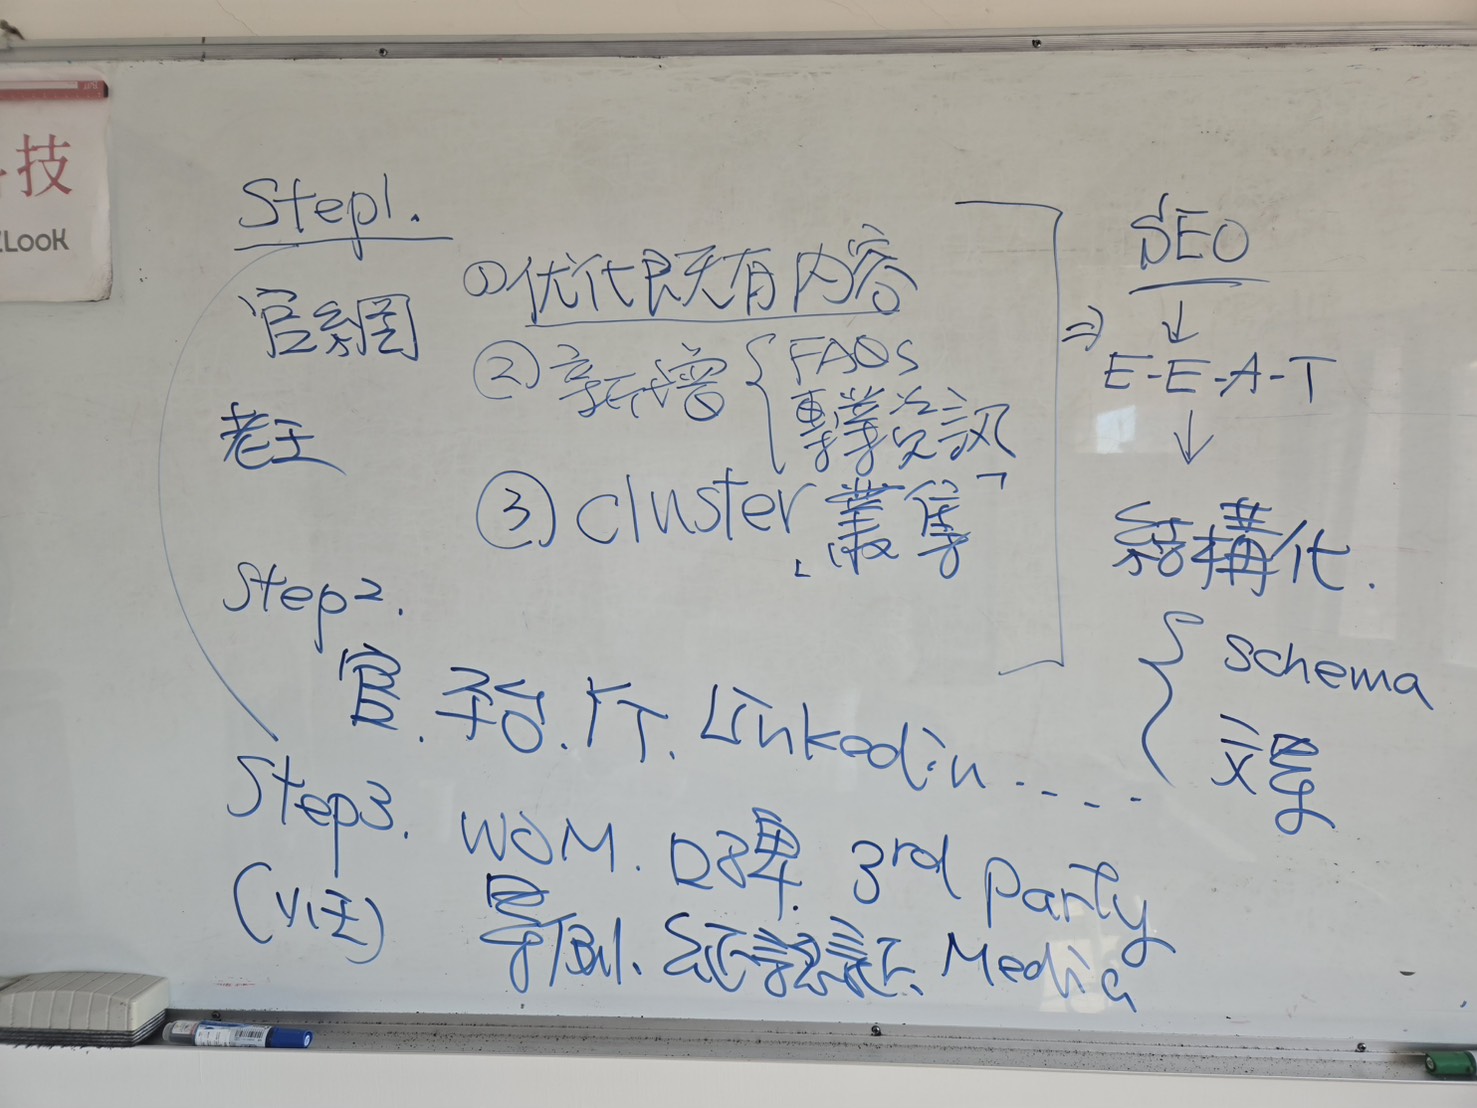 技
LOOK
Step1.
官網
老王
①优化既有内容
②新增
FAQs
專業資訊
③cluster「叢集」
Step2.
官.子台.行.Linkedin....
Step3.
WOM.口碑.3rd Party
案例.認証.Media
⇒
SEO
↓
E-E-A-T
↓
結構化.
schema
文字